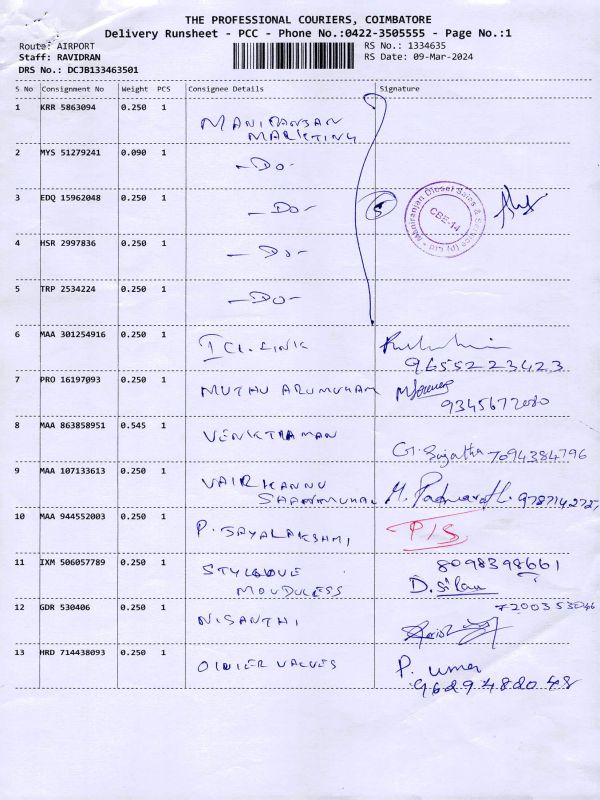 THE PROFESSIONAL COURIERS, COIMBATORE
Delivery Runsheet - PCC - Phone No.:0422-3505555 - Page No.:1
Route: AIRPORT RS No.: 1334635
Staff: RAVIDRAN RS Date: 09-Mar-2024
DRS No.: DCJB133463501
S No Consignment No Weight PCS Consignee Details Signature
1 KRR 5863094 0.250 1 MANIRANJAN
MARKTING
2 MYS 51279241 0.090 1 -Do-
3 EDQ 15962048 0.250 1 -Do- 5
Maniranjan Diesel Sales & Service (P) Ltd
CBE-14
4 HSR 2997836 0.250 1 -Do-
5 TRP 2534224 0.250 1 -Do-
6 MAA 301254916 0.250 1 ICI. LINK
9655223423
7 PRO 16197093 0.250 1 MUTHU ARUMUHAM
8 MAA 863858951 0.545 1 VENKTRAMAN G. Sujatha 7094384796
9 MAA 107133613 0.250 1 VAIRKANNU
10 MAA 944552003 0.250 1 P. JAYALAKSHMI P/S
11 IXM 506057789 0.250 1 8098398661
12 GDR 530406 0.250 1 NISANTHI
13 HRD 714438093 0.250 1 VALVES P. umar
9629482048